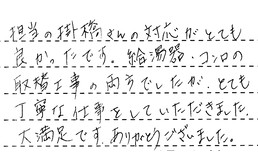 担当の掛橋さんの対応がとても
良かったです。給湯器・コンロの
取替工事の両方でしたが、とても
丁寧な仕事をしていただきました。
大満足です。ありがとうございました。